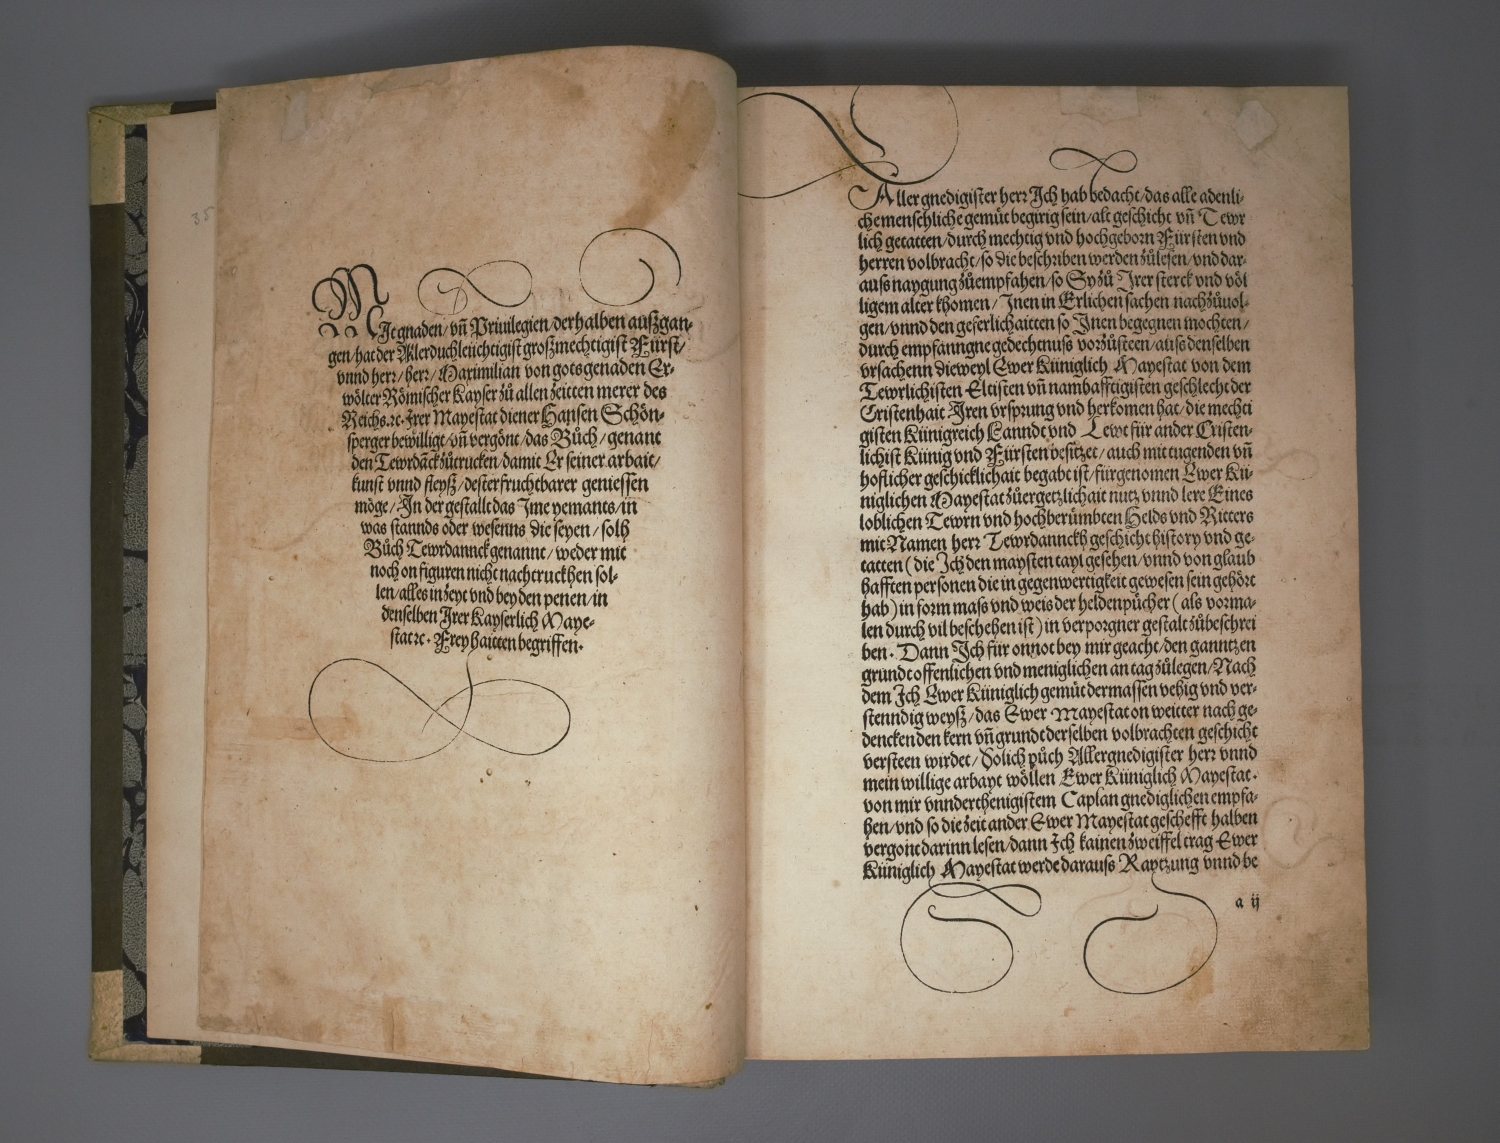 Mit gnaden/ vñ Priuilegien/ derhalben auszgan-
gen/ hat der Allerduchleüchtigist groszmechtigist Fürst/
vnnd herr/ herr/ Maximilian von gots genaden Er-
wölter Römischer Kayser zů allen zeitten merer des
Reichs.ꝛc. Irer Mayestat diener Hansen Schön-
sperger bewilligt/ vñ vergönt/ das Bůch/ genant
den Tewrdäck zůtrucken/ damit Er seiner arbait/
kunst vnnd fleysz/ dester fruchtbarer geniessen
möge/ In der gestallt das Ime yemants/ in
was stannds oder wesenns die seyen/ solh
Bůch Tewrdannck genannt/ weder mit
noch on figuren nicht nachtruckhen sol-
len/ alles in zeyt vnd bey den penen/ in
denselben Irer Kayserlich Maye-
stat ꝛc. Freyhaitten begriffen.
Aller gnedigister herr Ich hab bedacht/ das alle adenli-
che menschliche gemüt begirig sein/ alt geschicht vñ Tewr
lich getatten/ durch mechtig vnd hochgeborn Fürsten vnd
herren volbracht/ so die beschriben werden zůlesen/ vnd dar-
auss naygung zůempfahen/ so Sy zů Irer sterck vnd völ
ligem alter khomen/ Inen in Erlichen sachen nachzůuol-
gen/ vnnd den geferlichaitten so Inen begegnen mochten/
durch empfanngne gedechtnuss vorzůsteen/ auss denselben
vrsachenn dieweyl Ewer Küniglich Mayestat von dem
Tewrlichisten Eltisten vñ nambafftigisten geschlecht der
Cristenhait Iren vrsprung vnd herkomen hat/ die mechti
gisten Künigreich Lanndt vnd Lewt für ander Cristen-
lichist Künig vnd Fürsten besitzet/ auch mit tugenden vñ
hoflicher geschicklichait begabt ist/ fürgenomen Ewer Kü-
niglichen Mayestat zůergetzlichait nutz vnnd lere Eines
loblichen Tewrn vnd hochberümbten Helds vnd Ritters
mit Namen herr Tewrdannckh geschicht history vnd ge-
tatten (die Ich den maysten tayl gesehen/ vnnd von glaub
hafften personen die in gegenwertigkeit gewesen sein gehört
hab) in form mass vnd weis der heldenpücher (als vorma-
len durch vil beschehen ist) in verporgner gestalt zůbeschrei
ben. Dann Ich für onnot bey mir geacht/ den ganntzen
grundt offenlichen vnd meniglichen an tag zůlegen/ Nach
dem Ich Ewer Küniglich gemüt dermassen vehig vnd ver-
stenndig weysz/ das Ewer Mayestat on weitter nach ge-
dencken den kern vñ grundt derselben volbrachten geschicht
versteen wirdet/ Solich půch Allergnedigister herr vnnd
mein willige arbayt wöllen Ewer Küniglich Mayestat.
von mir vnnderthenigistem Caplan gnediglichen empfa-
hen/ vnd so die zeit ander Ewer Mayestat geschefft halben
vergont darinn lesen/ dann Ich kainen zweiffel trag Ewer
Küniglich Mayestat werde darauss Raytzung vnnd be
a ij